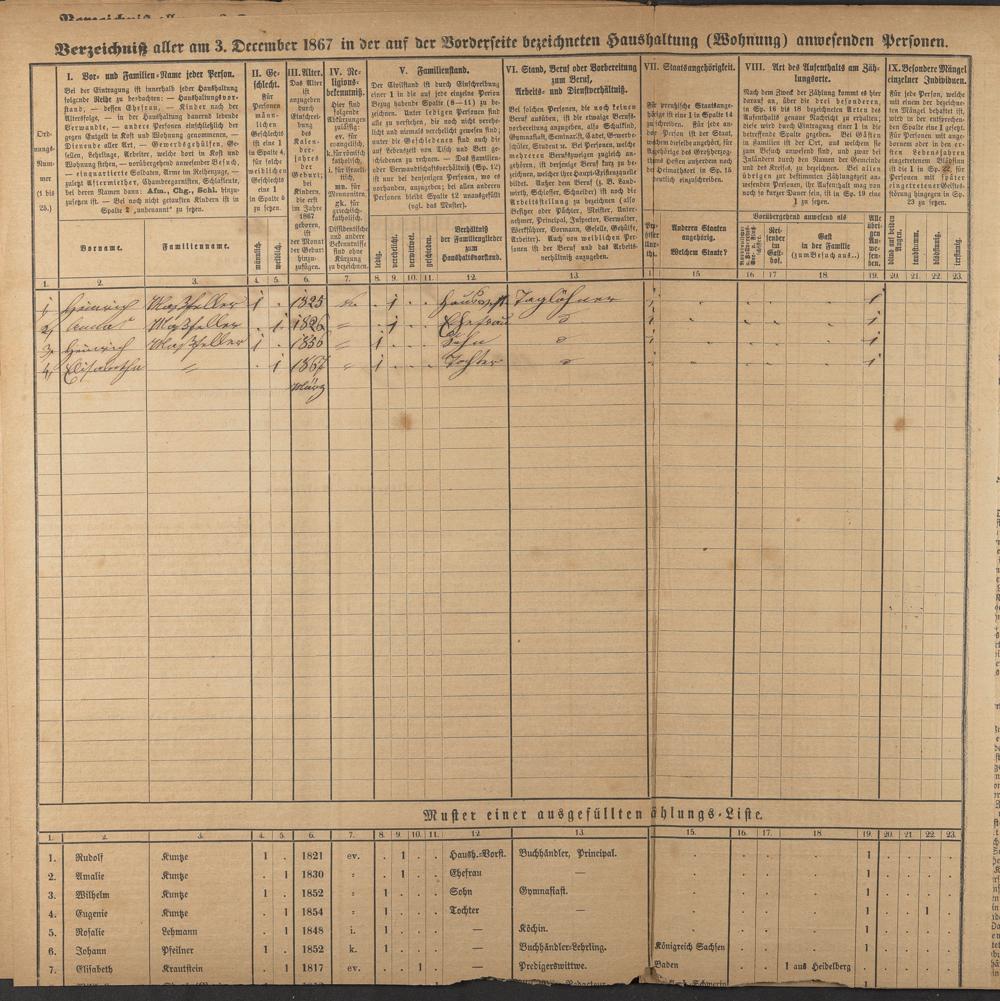 Verzeichniß aller am 3. December 1867 in der auf der Vorderseite bezeichneten Haushaltung (Wohnung) anwesenden Personen.
Ord-
nungs-
Num-
mer
(1 bis
25.)
I. Vor- und Familien-Name jeder Person.
Bei der Eintragung ist innerhalb jeder Haushaltung
folgende Reihe zu beobachten: — Haushaltungsvor-
stand; — dessen Ehefrau, — Kinder nach der
Altersfolge, — in der Haushaltung dauernd lebende
Verwandte, — andere Personen einschließlich der
gegen Entgelt in Kost und Wohnung genommenen, —
Dienende aller Art, — Gewerbsgehülfen, Ge-
sellen, Lehrlinge, Arbeiter, welche dort in Kost und
Wohnung stehen, — vorübergehend anwesender Besuch,
— einquartierte Soldaten, Arme im Reihenzuge, —
zuletzt Aftermiether, Chambregarnisten, Schlafleute,
bei deren Namen dann: Afm., Chg., Schl. hinzu-
zusetzen ist. — Bei noch nicht getauften Kindern ist in
Spalte 2 „unbenannt“ zu setzen.
Vorname.
Familienname.
II. Ge-
schlecht.
Für
Personen
männ-
lichen
Geschlechts
ist eine 1
in Spalte 4,
für solche
weiblichen
Geschlechts
eine 1
in Spalte 5
zu setzen.
männlich.
weiblich.
III. Alter.
Das Alter
ist
anzugeben
durch
Einschrei-
bung
des
Kalen-
der-
jahres
der
Geburt;
bei
Kindern,
die erst
im Jahre
1867
geboren,
ist
der Monat
der Geburt
hinzu-
zufügen.
IV. Re-
ligions-
bekenntniß.
Hier sind
folgende
Abkürzungen
zulässig:
ev. für
evangelisch,
k. für römisch
katholisch,
i. für israeli-
tisch,
mn. für
Mennoniten,
gk. für
griechisch-
katholisch.
Dissidentische
und andere
Bekenntnisse
sind ohne
Kürzung
zu bezeichnen.
V. Familienstand.
Der Civilstand ist durch Einschreibung
einer 1 in die auf jede einzelne Person
Bezug habende Spalte (8—11) zu be-
zeichnen. Unter ledigen Personen sind
alle zu verstehen, die noch nicht verehe-
licht und niemals verehelicht gewesen sind;
unter die Geschiedenen sind auch die
auf Lebenszeit von Tisch und Bett ge-
schiedenen zu rechnen. — Das Familien-
oder Verwandtschaftsverhältniß (Sp. 12)
ist nur bei denjenigen Personen, wo es
vorhanden, anzugeben; bei allen anderen
Personen bleibt Sp. 12 unausgefüllt
(vgl. das Muster).
ledig.
verehelicht.
verwittwet.
geschieden.
Verhältniß
der Familienglieder
zum
Haushaltsvorstand.
VI. Stand, Beruf oder Vorbereitung
zum Beruf,
Arbeits- und Dienstverhältniß.
Bei solchen Personen, die noch keinen
Beruf ausüben, ist die etwaige Berufs-
vorbereitung anzugeben, als Schulkind,
Gymnasiast, Seminarist, Cadet, Gewerbe-
schüler, Student u. Bei Personen, welche
mehreren Berufszweigen zugleich an-
gehören, ist derjenige Beruf zu bezeich-
nen, welcher ihre Haupt-Existenzquelle
bildet. Außer dem Beruf (z. B. Land-
wirth, Schlosser, Schneider) ist noch die
Arbeitsstellung zu bezeichnen (also
Besitzer oder Pächter, Meister, Unter-
nehmer, Principal, Inspector, Verwalter,
Werkführer, Vormann, Geselle, Gehülfe,
Arbeiter). Auch von weiblichen Per-
sonen ist der Beruf und das Arbeits-
verhältniß anzugeben.
VII. Staatsangehörigkeit.
Anderen Staaten
angehörig.
Welchem Staate?
VIII. Art des Aufenthalts am Zäh-
lungsorte.
Nach dem Zweck der Zählung kommt es hier
darauf an, über die drei besonderen,
in Sp. 16 bis 18 bezeichneten Arten des
Aufenthalts genaue Nachricht zu erhalten;
diese wird durch Eintragung einer 1 in die
betreffende Spalte gegeben. Bei Gästen
in Familien ist der Ort, aus welchem sie
zum Besuch anwesend sind, und zwar bei
Inländern durch den Namen der Gemeinde
und des Kreises, zu bezeichnen. Bei allen
übrigen zur bestimmten Zählungszeit an-
wesenden Personen, ihr Aufenthalt mag von
noch so kurzer Dauer sein, ist in Sp. 19 eine
1 zu setzen.
Vorübergehend anwesend als
Rei-
sender
im
Gast-
hof.
Gast
in der Familie
(zum Besuch aus..)
Alle
übri-
gen
An-
wesen-
den.
IX. Besondere Mängel
einzelner Individuen.
Für jede Person, welche
mit einem der bezeichne-
ten Mängel behaftet ist,
wird in der entsprechen-
den Spalte eine 1 gesetzt.
Für Personen mit ange-
bornem oder in den er-
sten Lebensjahren
eingetretenem Blödsinn
ist die 1 in Sp. 22, für
Personen mit später
eingetretener Geistes-
störung hingegen in Sp.
23 zu setzen.
blind auf beiden
Augen.
taubstumm.
blödsinnig.
irrsinnig.
1. 2. 3. 4. 5. 6. 7. 8. 9. 10. 11. 12. 13. 15. 16. 17. 18. 19. 20. 21. 22. 23.
1, Heinrich Maßfeller 1 . 1825 . 1 . . Taglöhner 1
2, Anna Maßfeller . 1 1826 " . 1 . . Ehefrau 1
3, Heinrich Maßfeller 1 . " 1 . . . Sohn 1
4, Elisabetha " . 1 1867 " 1 . . . Tochter 1
März
Muster einer ausgefüllten ählungs-Liste.
1. 2. 3. 4. 5. 6. 7. 8. 9. 10. 11. 12. 13. 15. 16. 17. 18. 19. 20. 21. 22. 23.
1. Rudolf Kuntze 1 . 1821 ev. . 1 . . Haush.-Vorst. Buchhändler, Principal. . . . . 1 . . . .
2. Amalie Kuntze . 1 1830 " . 1 . . Ehefrau — . . . . 1 . . . .
3. Wilhelm Kuntze 1 . 1852 " 1 . . . Sohn Gymnasiast. . . . . 1 . . . .
4. Eugenie Kuntze . 1 1854 " 1 . . . Tochter — . . . . 1 . . 1 .
5. Rosalie Lehmann . 1 1848 i. 1 . . . — Köchin. . . . . 1 . . . .
6. Johann Pfeilner 1 . 1852 k. 1 . . . — Buchhändler-Lehrling. Königreich Sachsen . . . 1 . . . .
7. Elisabeth Krautstein . 1 1817 ev. . . 1 . — Predigerswittwe. Baden . . 1 aus Heidelberg . . . . .